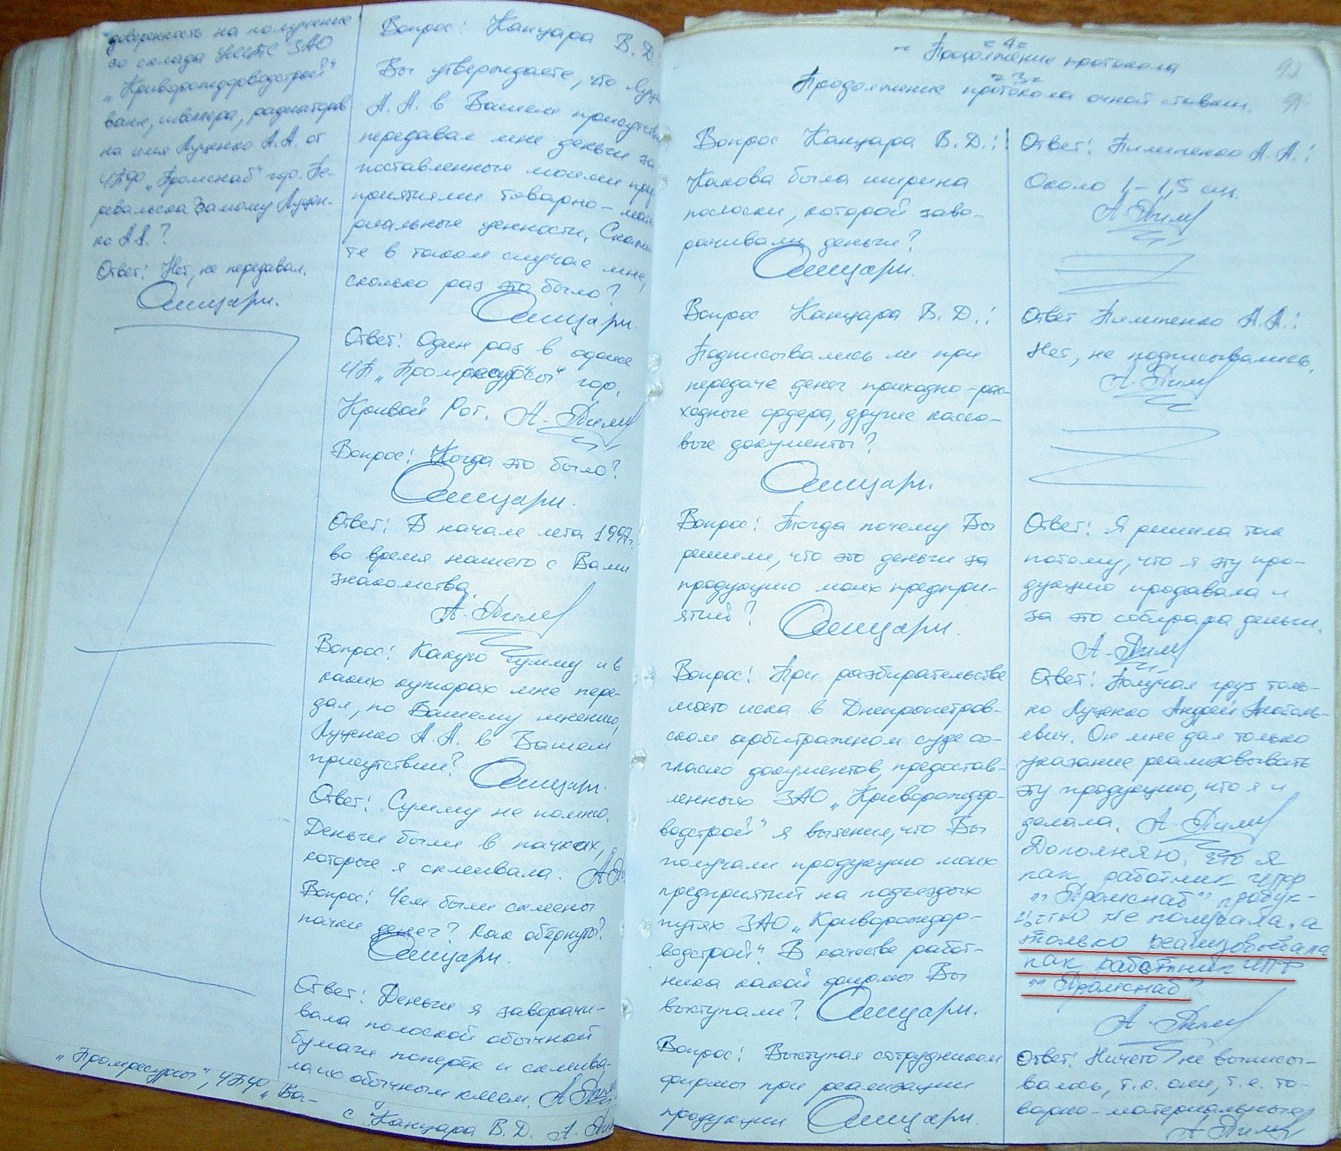 доверенность на получение
со склада ЗАО
„Криворождорводстрой"
ванн, швеллера, радиаторов
на имя Луценко А.А. от
ЧПФ „Промснаб" гор. Пе-
ревальска самому Луцен-
ко А.А.?
Ответ: Нет, не передавал.
„Промресурсы", ЧПФ „Ва-
Вопрос: Канцара В.Д.
Вы утверждаете, что Луце
А.А. в Вашем присутстви
передавал мне деньги за
поставленные моими пред
приятиями товарно-мате
риальные ценности. Скажи
те в таком случае мне,
сколько раз это было?
Ответ: Один раз в офисе
ЧП „Промресурсы" гор.
Кривой Рог.
Вопрос: Когда это было?
Ответ: В начале лета 1997г.
во время нашего с Вами
знакомства.
Вопрос: Какую сумму и в
каких купюрах мне пере-
дал, по Вашему мнению,
Луценко А.А. в Вашем
присутствии?
Ответ: Сумму не помню.
Деньги были в пачках,
которые я склеивала.
Вопрос: Чем были склеены
пачки денег? Как обёрнуты?
Ответ: Деньги я заворачи-
вала полоской обычной
бумаги поперёк и склеива-
ла их обычным клеем.
с Канцара В.Д.
- 4 -
- Продолжение протокола
- 3 -
Продолжение протокола очной ставки.
Вопрос Канцара В.Д.:
Какова была ширина
полоски, которой заво-
рачивали деньги?
Вопрос Канцара В.Д.:
Подписывались ли при
передаче денег приходно-рас-
ходные ордера, другие кассо-
вые документы?
Вопрос: Тогда почему Вы
решили, что это деньги за
продукцию моих предпри-
ятий?
Вопрос: При разбирательстве
моего иска в Днепропетров-
ском арбитражном суде со-
гласно документов, предостав-
ленных ЗАО „Криворождор-
водстрой" я выяснил, что Вы
получали продукцию моих
предприятий на подъездных
путях ЗАО „Криворождор-
водстрой". В качестве работ-
ника какой фирмы Вы
выступали?
Вопрос: Выступая сотрудником
фирмы при реализации
продукции
Ответ: Пилипенко А.А.:
Около 1,-1,5 см.
Ответ Пилипенко А.А.:
Нет, не подписывались.
Ответ: Я решила так
потому, что я эту про-
дукцию продавала и
за это собирала деньги.
Ответ: Получал груз толь-
ко Луценко Андрей Анатоль-
евич. Он мне дал только
указание реализовывать
эту продукцию, что я и
делала.
Дополняю, что я
как работник ЧПФ
"Промснаб" продук-
цию не получала, а
только реализовывала
как работник ЧПФ
"Промснаб"
Ответ: Ничего не выписы-
валось, т.е. они, т.е. то-
варно-материальные